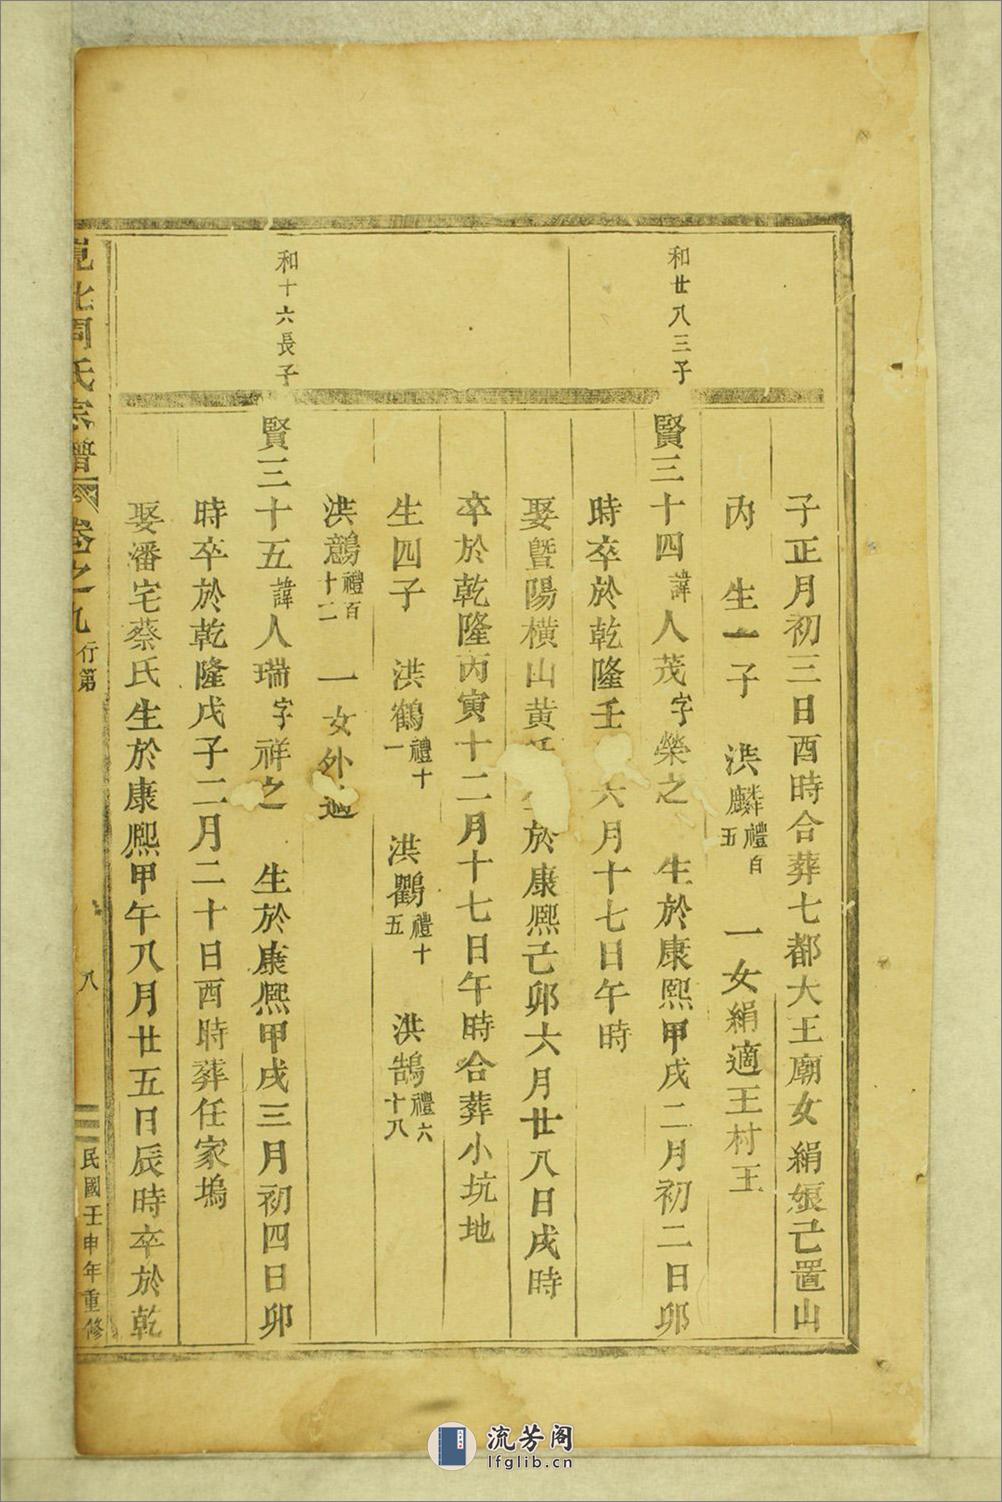 和廿八三子
子正月初三日酉時合葬七都大王廟女絹娘己置山
內 生一子 洪麟禮百五 一女絹適王村王
賢三十四諱人茂字榮之 生於康熙甲戌二月初二日卯
時卒於乾隆壬 六月十七日午時
娶暨陽橫山黃 於康熙己卯六月廿八日戌時
卒於乾隆丙寅十二月十七日午時合葬小坑地
生四子 洪鶴禮十一 洪鸛禮十五 洪鵠禮六十八
洪鷀禮百十二 一女外適
和十六長子
賢三十五諱人瑞字祥之 生於康熙甲戌三月初四日卯
時卒於乾隆戊子二月二十日酉時葬任家塢
娶潘宅蔡氏生於康熙甲午八月廿五日辰時卒於乾
周氏宗譜 卷之九 行第 八 民國壬申年重修
流芳阁
lfglib.cn